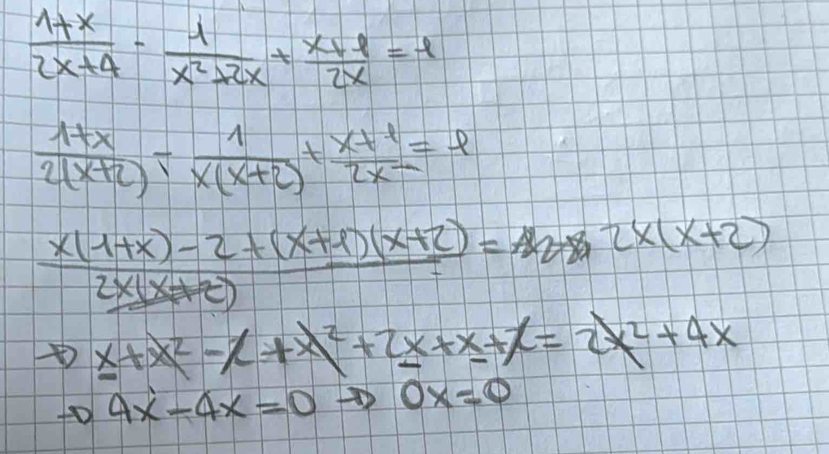 (1+x)/(2x+4) - 1/(x²+2x) + (x+1)/(2x) = 1
(1+x)/(2(x+2)) - 1/(x(x+2)) + (x+1)/(2x) = 1
(x(1+x)-2+(x+1)(x+2))/(2x(x+2)) = 2x(x+2)
⇒ x+x²-2+x²+2x+x+2 = 2x²+4x
⇒ 4x-4x=0 ⇒ 0x=0